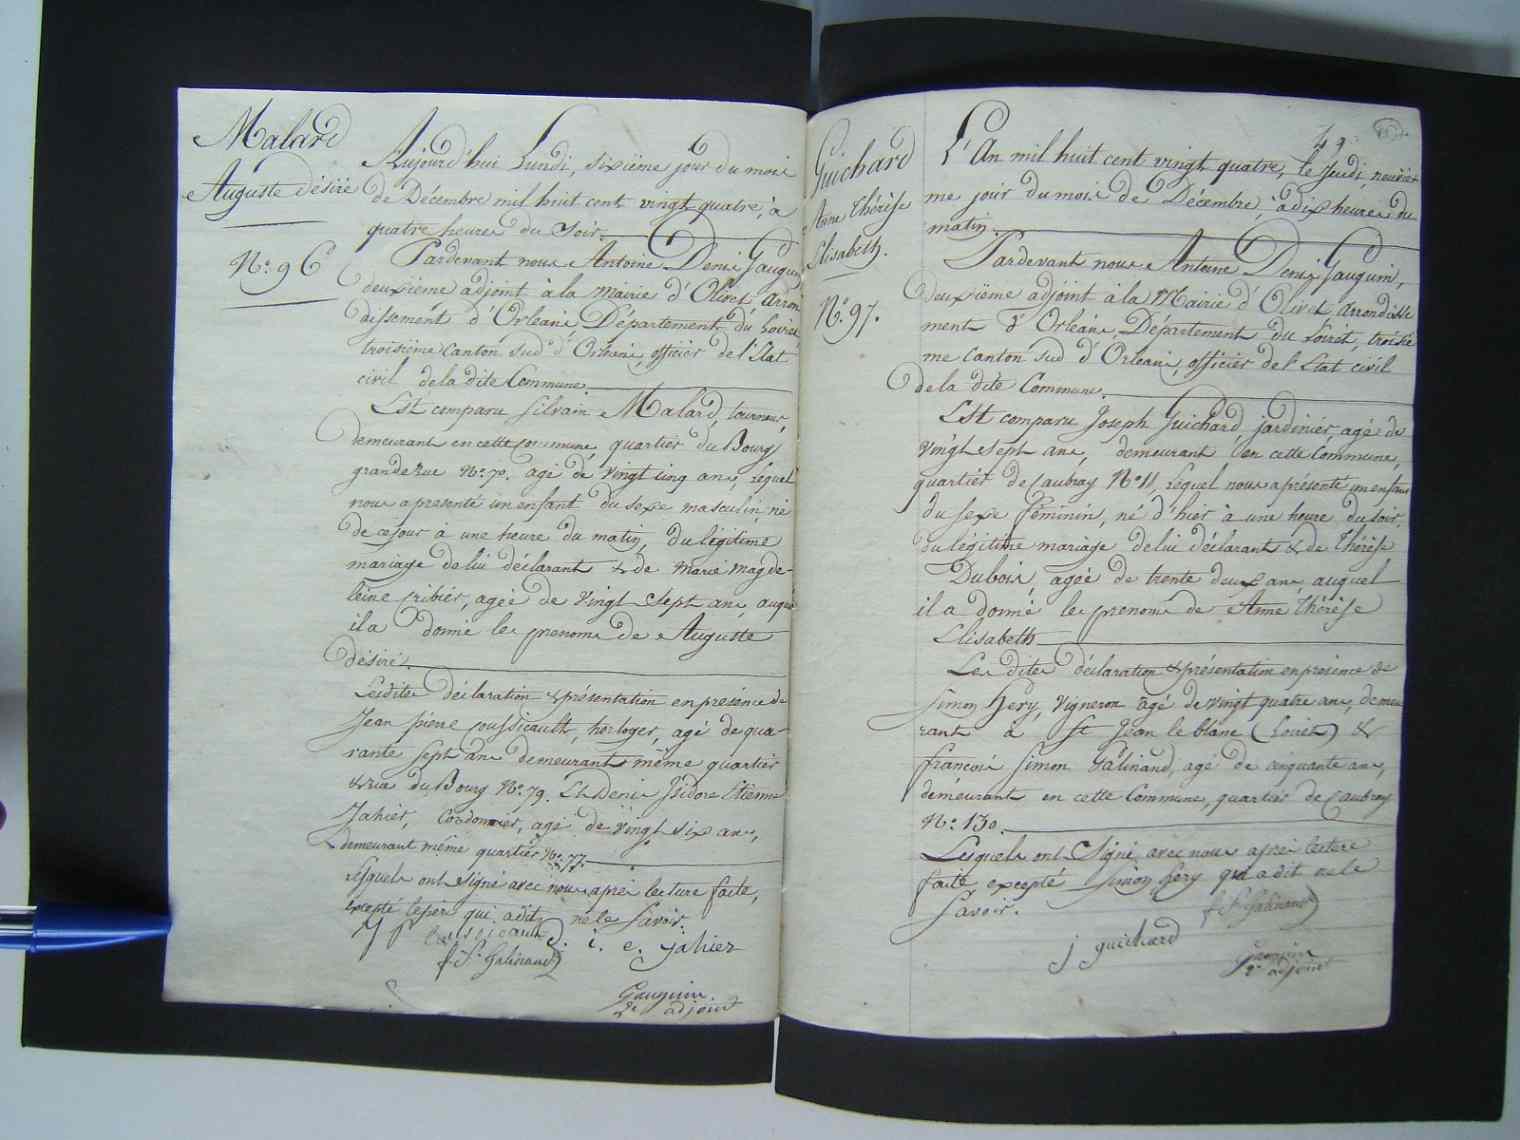 Malard
Auguste désiré
N.º 96
Aujourd'hui Lundi, sixiéme jour du mois
de Décembre mil huit cent vingt quatre, à
quatre heures du Soir.
Pardevant nous Antoine Denis Gauguin
deuxiéme adjoint à la Mairie d'Olivet, arron
dissement d'Orleans Département du Loiret,
troisiéme Canton sud d'Orleans, officier de l'Etat
civil de la dite Commune.
Est comparu Silvain Malard, tourneur,
demeurant en cette commune, quartier du Bourg
grande rue N.º 70. agé de vingt cinq ans, Lequel
nous a presenté un enfant du sexe masculin, né
de ce jour à une heure du matin, du légitime
mariage de lui déclarant & de Marie Magde-
leine agée de vingt Sept ans, auquel
il a donné les prenoms de Auguste
désiré.
Lesdites déclaration & présentation en présence de
Jean pierre coussicault, horloger, agé de qua-
rante sept ans demeurant même quartier
& rue du Bourg N.º 79. Et Denis Isidore Etienne
Jahier, Cordonnier, agé de vingt six ans,
demeurant même quartier N.º 77.
lesquels ont Signé avec nous apres lecture faite,
excepté le père qui a dit ne le Savoir.
J P coussicault D. i. e. jahier
f. S. Galinand
Gauguin
2e adjoint
49.
Guichard
Anne thérèse
Elisabeth.
N.º 97.
L'An mil huit cent vingt quatre, le Jeudi, neuvié
me jour du mois de Décembre, à dix heures du
matin.
Pardevant nous Antoine Denis Gauguin,
deuxiéme adjoint à la Mairie d'Olivet arrondisse
ment d'Orleans, Département du Loiret, troisié
me Canton sud d'Orleans, officier de l'Etat civil
de la dite Commune.
Est comparu Joseph Guichard, jardinier, agé de
vingt Sept ans, demeurant en cette Commune,
quartier de Caubray N.º 11. Lequel nous a présenté un enfant
du sexe féminin, né d'hier à une heure du soir,
du légitime mariage de lui déclarant & de Thérèse
Dubois, agée de trente deux ans, auquel
il a donné les prenoms de Anne thérèse
Elisabeth
Les dites déclaration & présentation en présence de
Simon Gery, Vigneron agé de vingt quatre ans, demeu
rant à St Jean le blanc (Loiret) &
françois Simon Galinand, agé de cinquante ans,
demeurant en cette Commune, quartier de Caubray
N.º 130.
Lesquels ont Signé avec nous apres lecture
faite, excepté Simon gery qui a dit ne le
Savoir.
f. S. Galinand
j guichard
Gauguin
2e adjoint